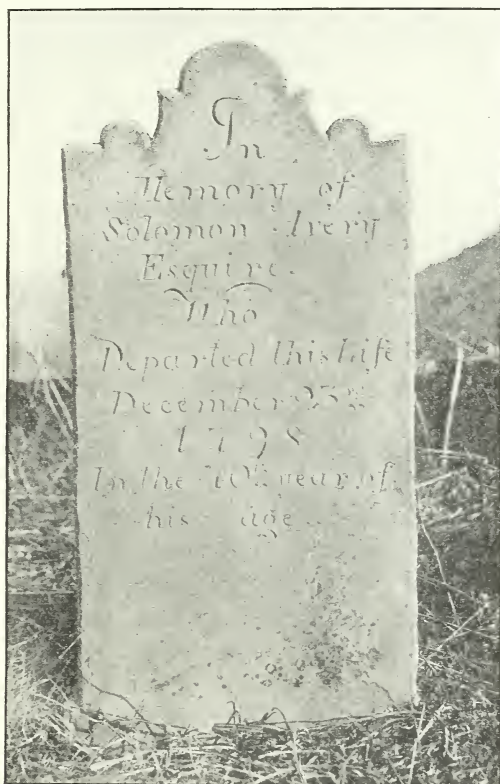 In
Memory of
Solomon Avery
Esquire.
Who
Departed this Life
December 23d
1798
In the year of
his age